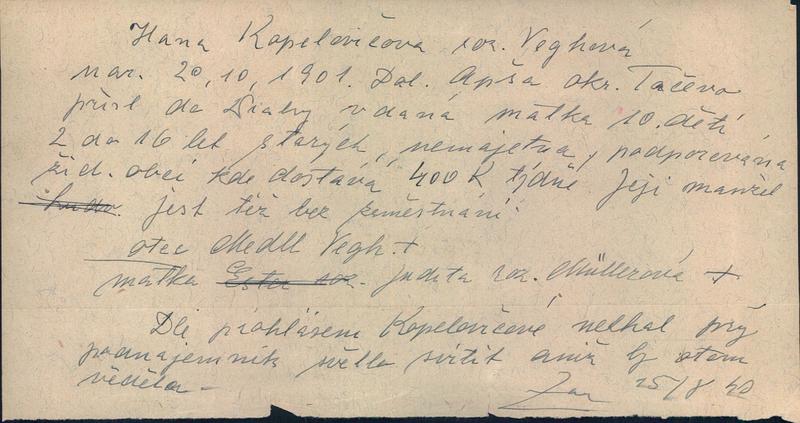 Hana Kopelovičova roz. Veghová
nar. 20,10,1901. Dol. Apša okr. Tačevo
přísl do Slatiny vdaná matka 10. dětí
2 do 16 let starých, nemajetna, podporována
žid. obcí kde dostává 400 K týdně. Její manžel
jest též bez zaměstnání.
otec Medll Vegh. +
matka Ester roz. Judita roz. Müllerová +
Dle prohlášení Kopelovičové nechal prý
podnajemník světlo svítit aniž by otom
věděla -
25/8 40